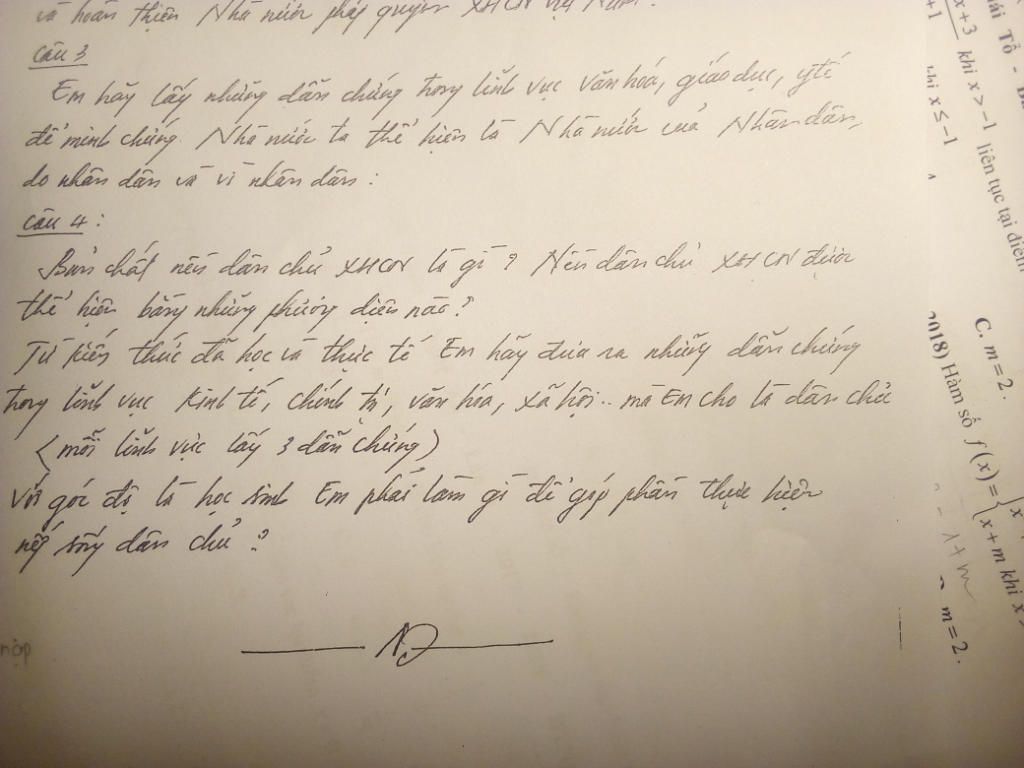 và hoàn thiện Nhà nước pháp quyền XHCN Việt Nam.
Câu 3
Em hãy lấy những dẫn chứng trong lĩnh vực văn hóa, giáo dục, y tế
để minh chứng Nhà nước ta thể hiện là Nhà nước của Nhân dân,
do nhân dân và vì nhân dân:
Câu 4:
Bản chất nền dân chủ XHCN là gì? Nền dân chủ XHCN được
thể hiện bằng những phương diện nào?
Từ kiến thức đã học và thực tế Em hãy đưa ra những dẫn chứng
trong lĩnh vực kinh tế, chính trị, văn hóa, xã hội.. mà Em cho là dân chủ
(mỗi lĩnh vực lấy 3 dẫn chứng)
Với góc độ là học sinh Em phải làm gì để góp phần thực hiện
nếp sống dân chủ?
nộp
Tổ -
x+3 khi x > -1
+1
khi x ≤ -1
liên tục tại điểm
C. m = 2.
2018) Hàm số f(x) = {
x + m khi x
1+m
m = 2.